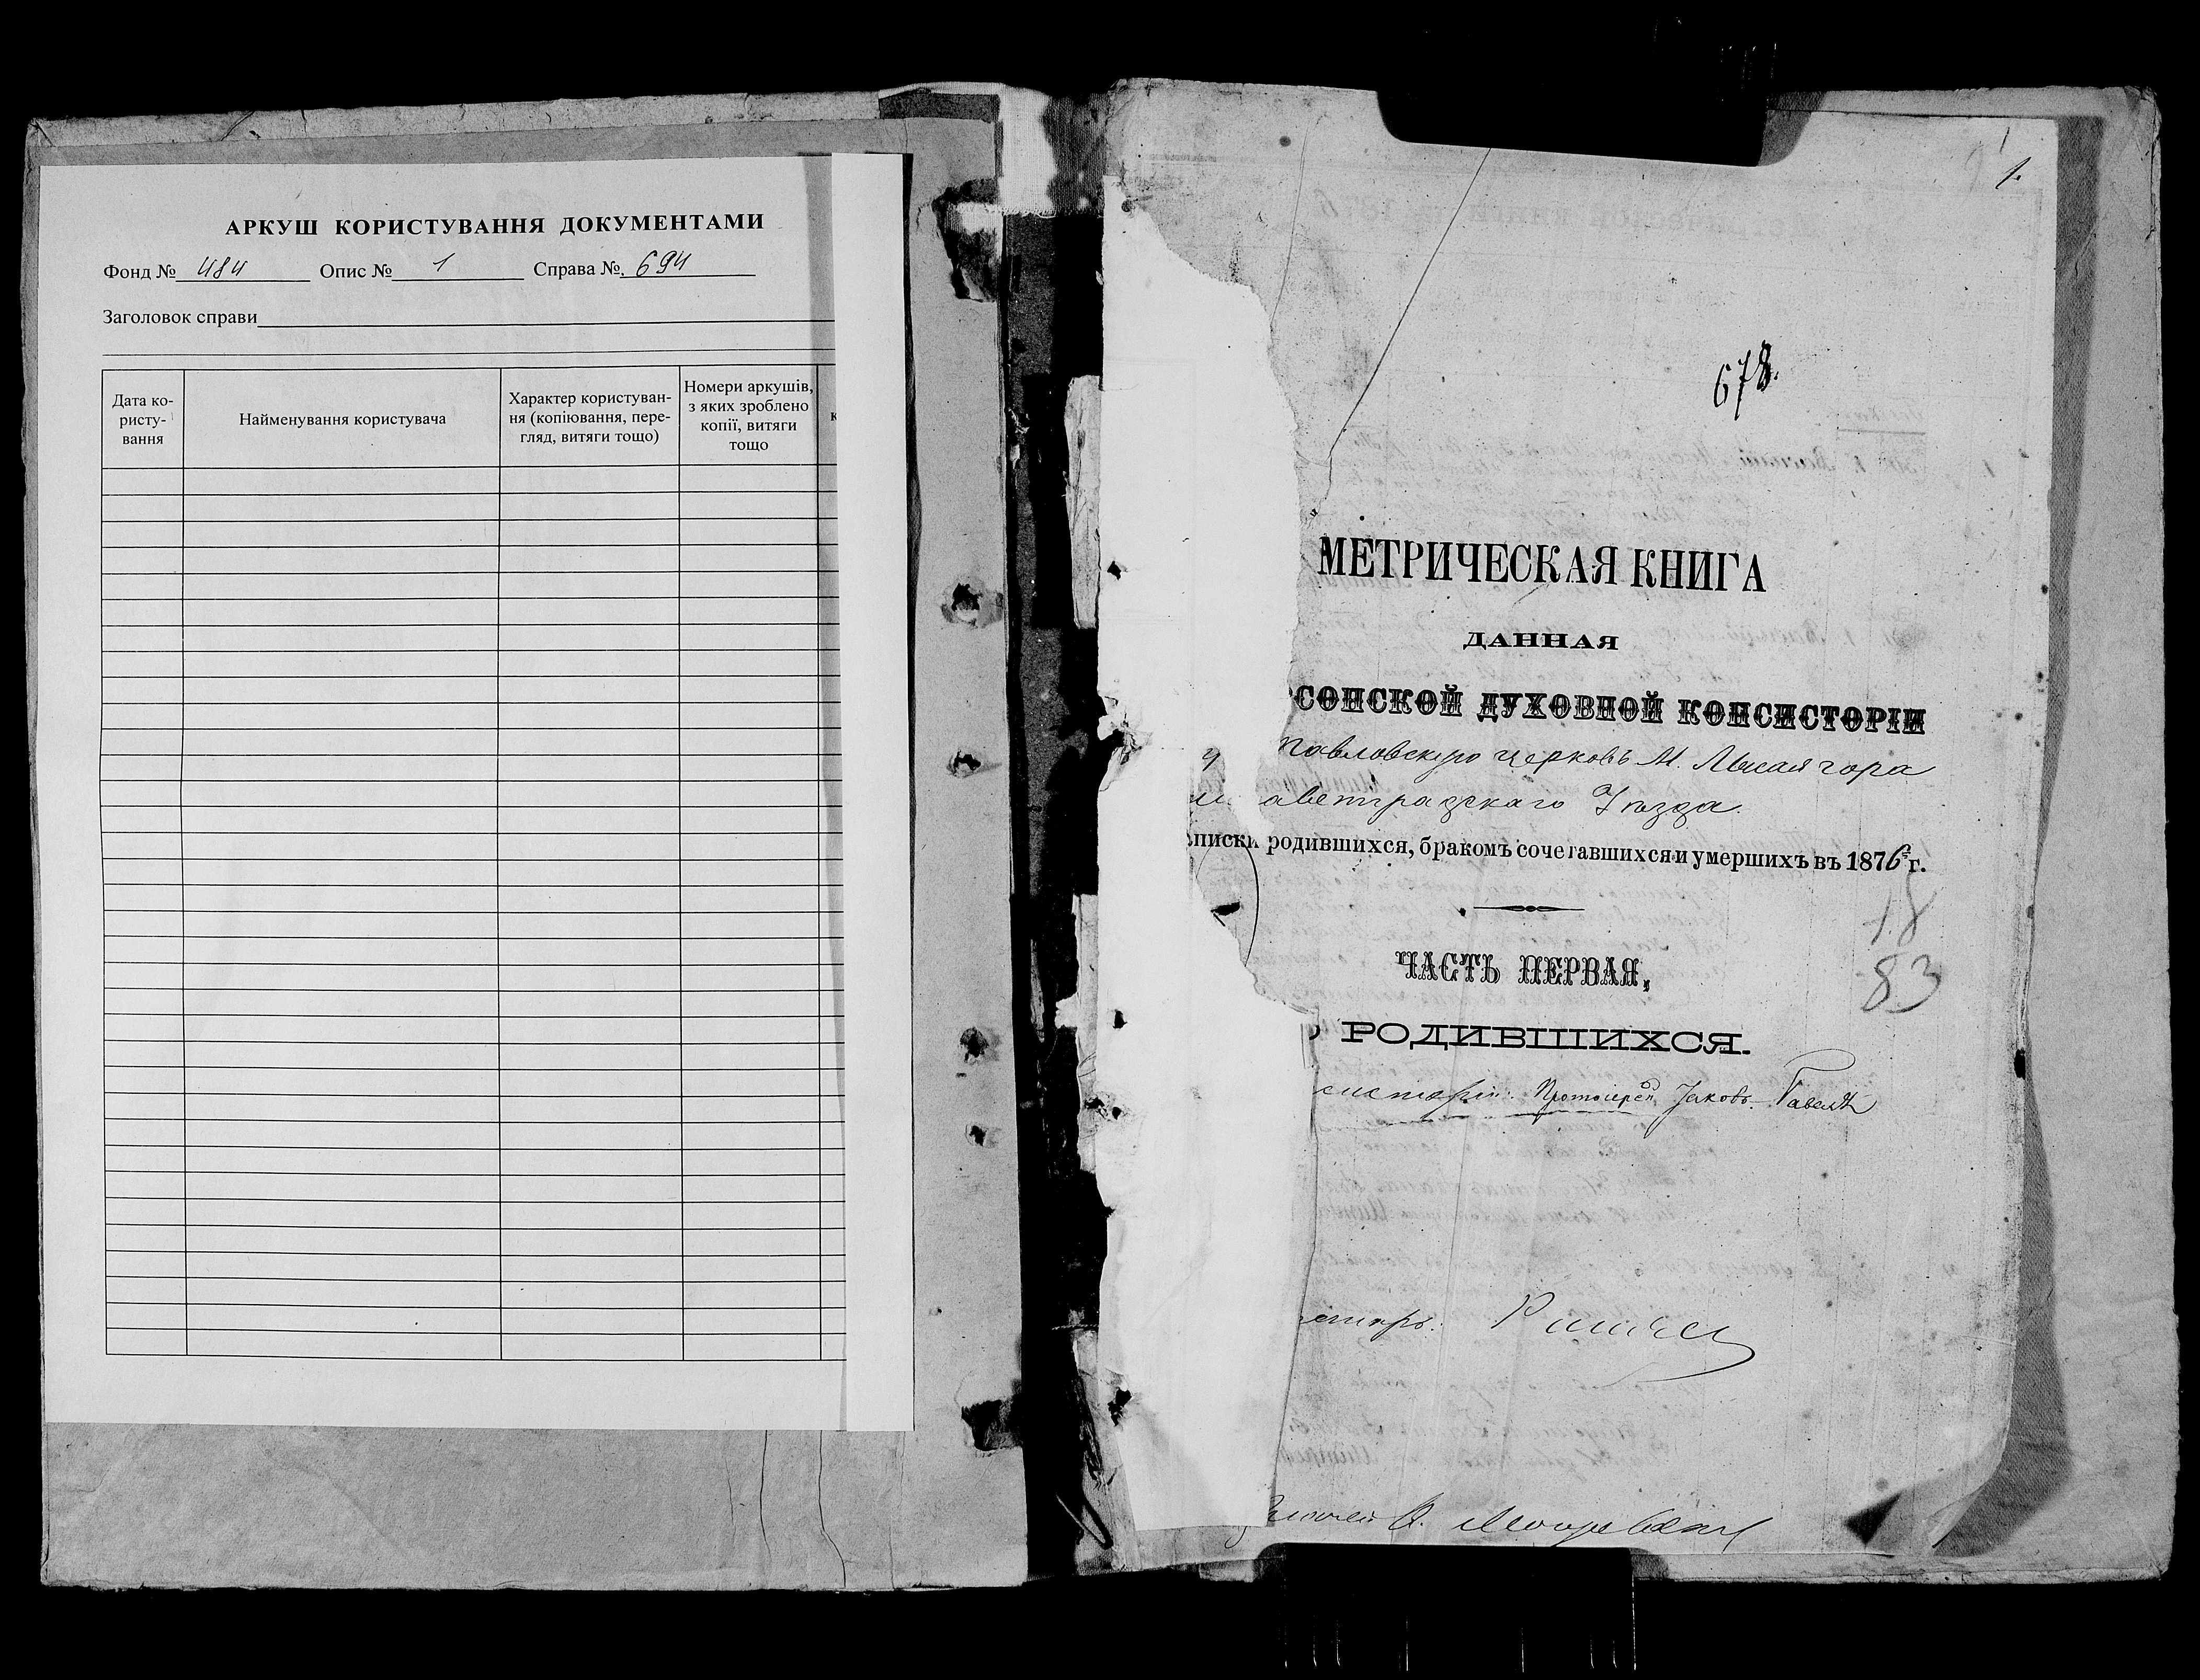 АРКУШ КОРИСТУВАННЯ ДОКУМЕНТАМИ
Фонд № 484 Опис № 1 Справа № 694
Заголовок справи
Дата ко-
ристу-
вання
Найменування користувача
Характер користуван-
ня (копіювання, пере-
гляд, витяги тощо)
Номери аркушів,
з яких зроблено
копії, витяги
тощо
к
1.
678.
МЕТРИЧЕСКАЯ КНИГА
ДАННАЯ
СОНСКОЙ ДУХОВНОЙ КОНСИСТОРІИ
Павловскую церковь М. Лысая гора
аветградскаго Уѣзда.
писки родившихся, бракомъ сочетавшихся и умершихъ въ 1876 г.
18
83
ЧАСТЬ ПЕРВАЯ,
РОДИВШИХСЯ.
систоріи: Протоіерей Іаковъ